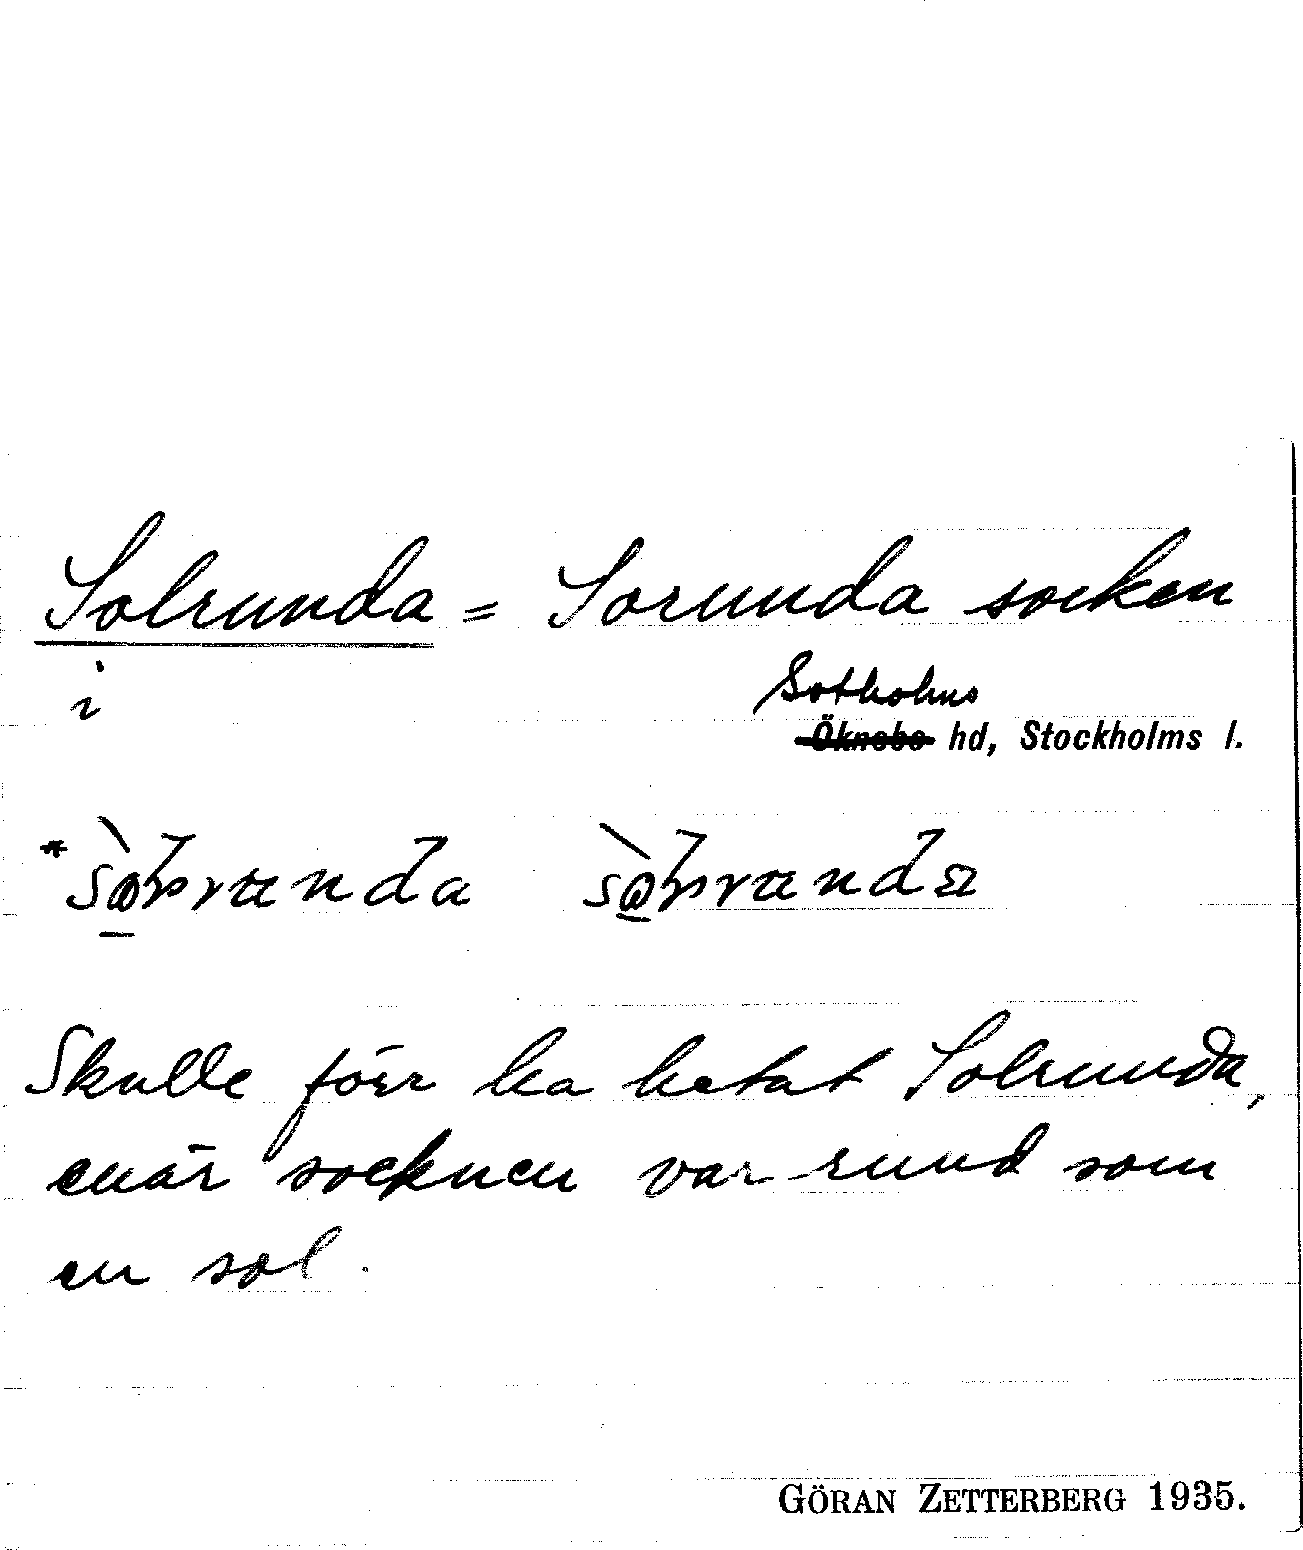 Solrunda = Sorunda socken
i
Sotholms
Öknebo hd, Stockholms l.
Skulle förr ha hetat Solrunda,
enär socknen var rund som
en sol.
GÖRAN ZETTERBERG 1935.